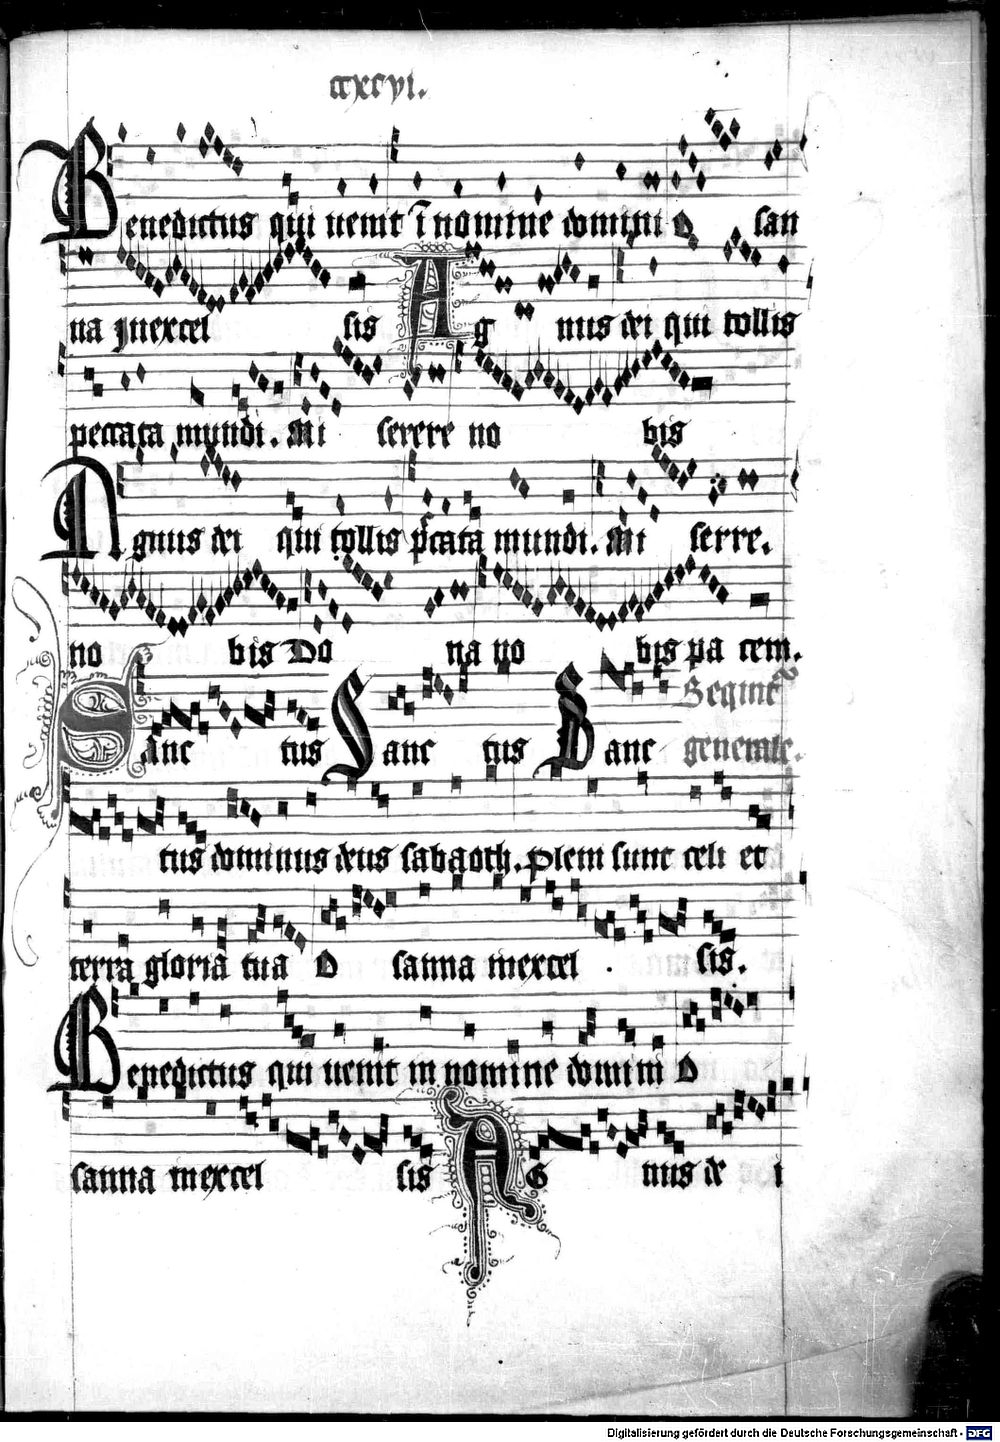 ccxcvi.
Benedictus qui uenit ī nomine domini O san
na Jnexcel sis Ag nus dei qui tollis
peccata mundi. Mi serere no bis
Agnus dei qui tollis pccata mundi. Mi serre.
no bis Do na no bis pa cem.
Seqint
Sanc tus Sanc tus Sanc generale.
tus dominus deus sabaoth. Plem sunt celi et
terra gloria tua O sanna inexcel sis.
Benedictus qui uenit in nomine domini O
sanna inexcel sis AG nus de i
Digitalisierung gefördert durch die Deutsche Forschungsgemeinschaft - DFG